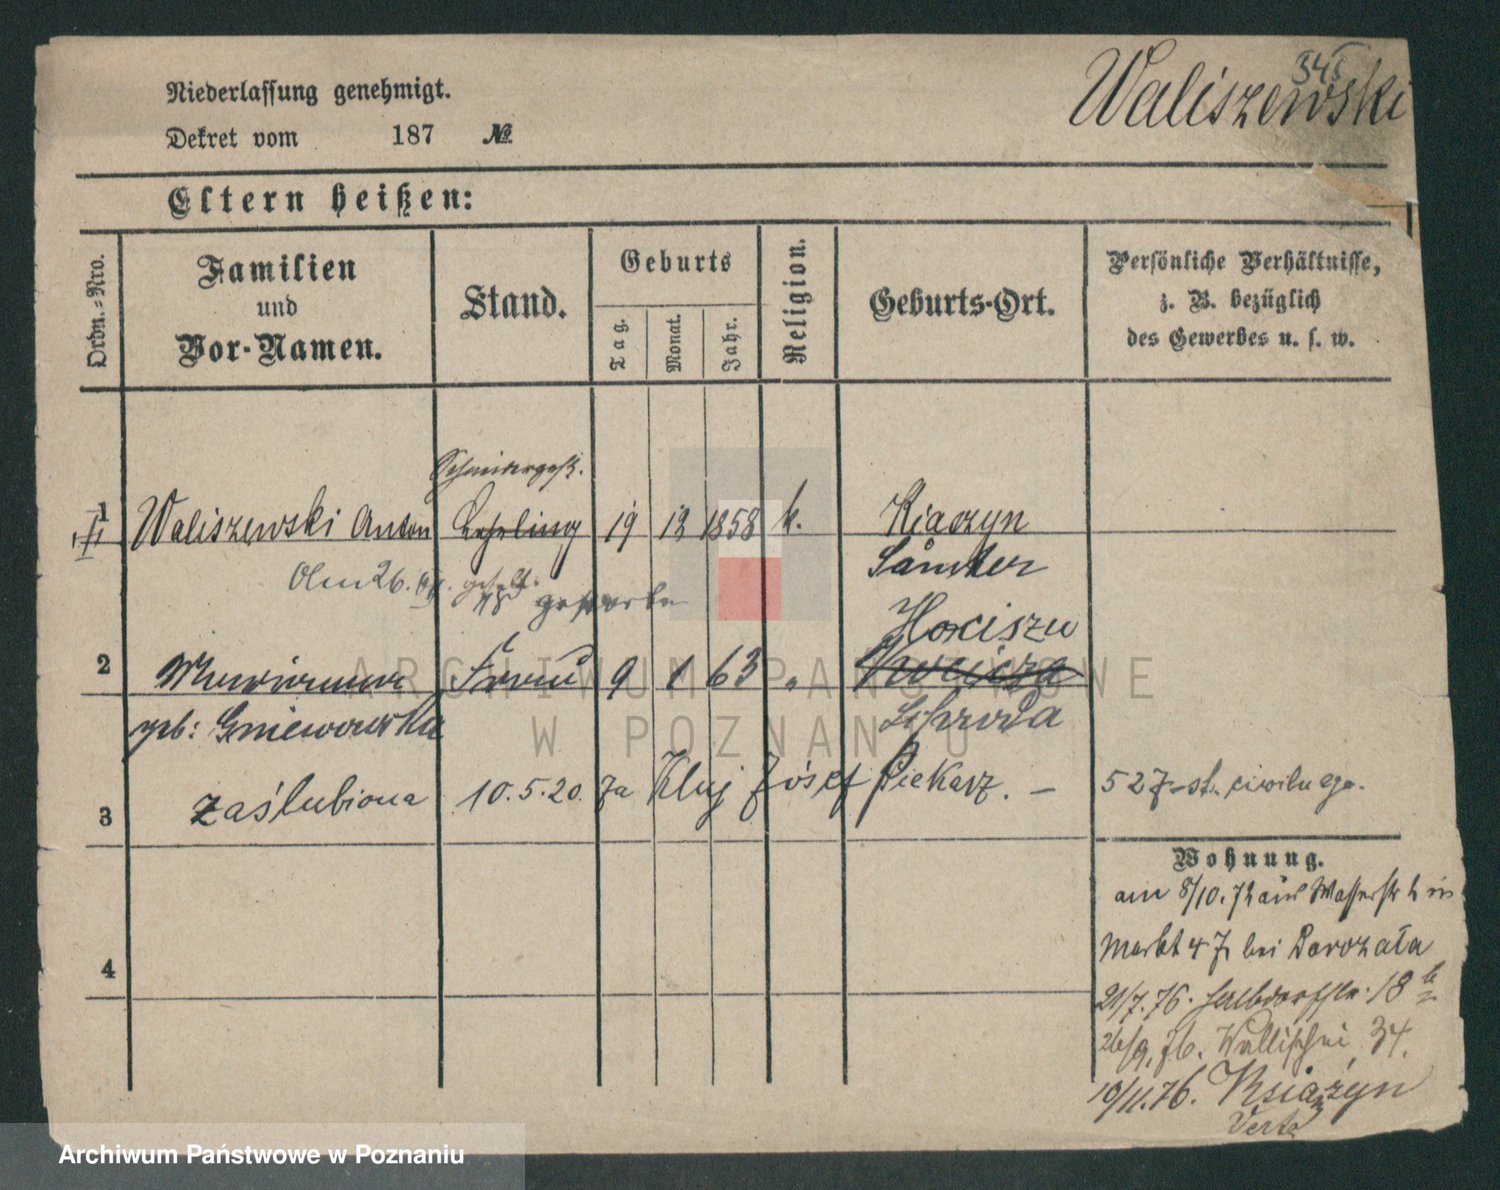 Niederlassung genehmigt.
Dekret vom 187 №
Waliszewski
Eltern heißen:
Ordn.-Nro.
Familien
und
Vor-Namen.
Stand.
Geburts
Tag.
Monat.
Jahr.
Religion.
Geburts-Ort.
Persönliche Verhältnisse,
z. B. bezüglich
des Gewerbes u. s. w.
1 Waliszewski Anton Lehrling 19 1858 k.
Samter
2 Frau 9 1 63 "
geb: Gniewowska Schroda
3 zaślubiona 10.5.20. za Kluj Józef Piekarz. — 527 st. civilnego.
Wohnung.
am 8/10. aus Wasserstr in
Markt 47 bei
21/7.76. Halbdorfstr. 18 b
26/9. 76. Wallischei 34.
10/11.76. Książyn
4
ARCHIWUM PAŃSTWOWE
W POZNANIU
Archiwum Państwowe w Poznaniu